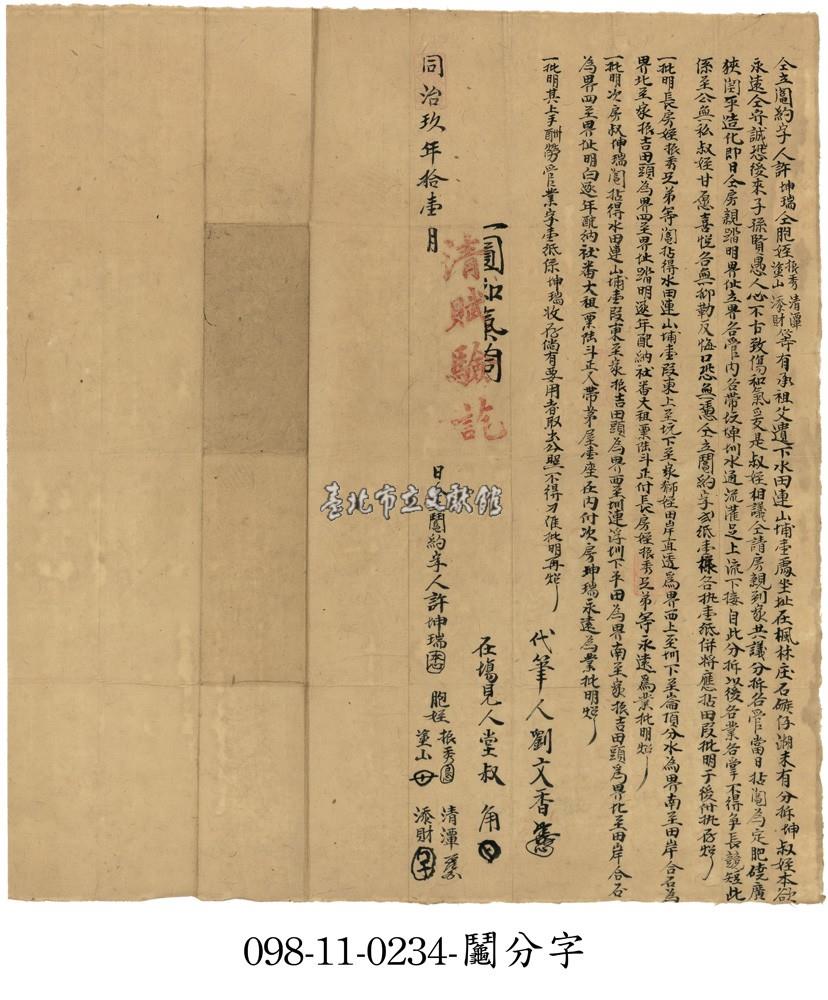 仝立鬮約字人許坤瑞仝胞姪振秀清潭塗山添財等有承祖父遺下水田連山埔壹處坐址在楓林庄石硦仔湖未有分拆坤叔姪本欲
永遠仝守誠恐後來子孫賢愚人心不古致傷和氣爰是叔姪相議仝請房親到家共議分拆各管當日拈鬮為定肥磽廣
狹闊平造化即日仝房親踏明界址立界各管內各帶坡埤圳水通流灌足上流下接自此分拆以後各業各掌不得爭長競短此
係至公無私叔姪甘愿喜悅各無抑勒反悔口恐無憑仝立鬮約字弍紙壹樣各执壹紙併將應拈田段批明于後付执存炤
一批明長房姪振秀兄弟等鬮拈得水田連山埔壹段東上至坑下至家獅姪田岸直透為界西上至圳下至崙頂分水為界南至田岸合石為
界北至家振吉田頭為界四至界址踏明逐年配納社番大租粟陸斗正付長房姪振秀兄弟等永遠為業批明炤
一批明次房叔坤瑞鬮拈得水田連山埔壹段東至家振吉田頭為界西至圳連浮圳下平田為界南至家振吉田頭為界北至田岸合石
為界四至界址明白逐年配納社番大租粟陸斗正又帶茅屋壹座在內付次房坤瑞永遠為業批明炤
一批明其上手酬勞管業字壹紙係坤瑞收存倘有要用者取出公照不得刁难批明再炤
代筆人劉文香
在塲見人堂叔角
一團和氣
清賦驗訖
日仝立鬮約字人許坤瑞
胞姪
振秀
塗山
清潭
添財
同治玖年拾壹月
臺北市立文獻館
098-11-0234-鬮分字